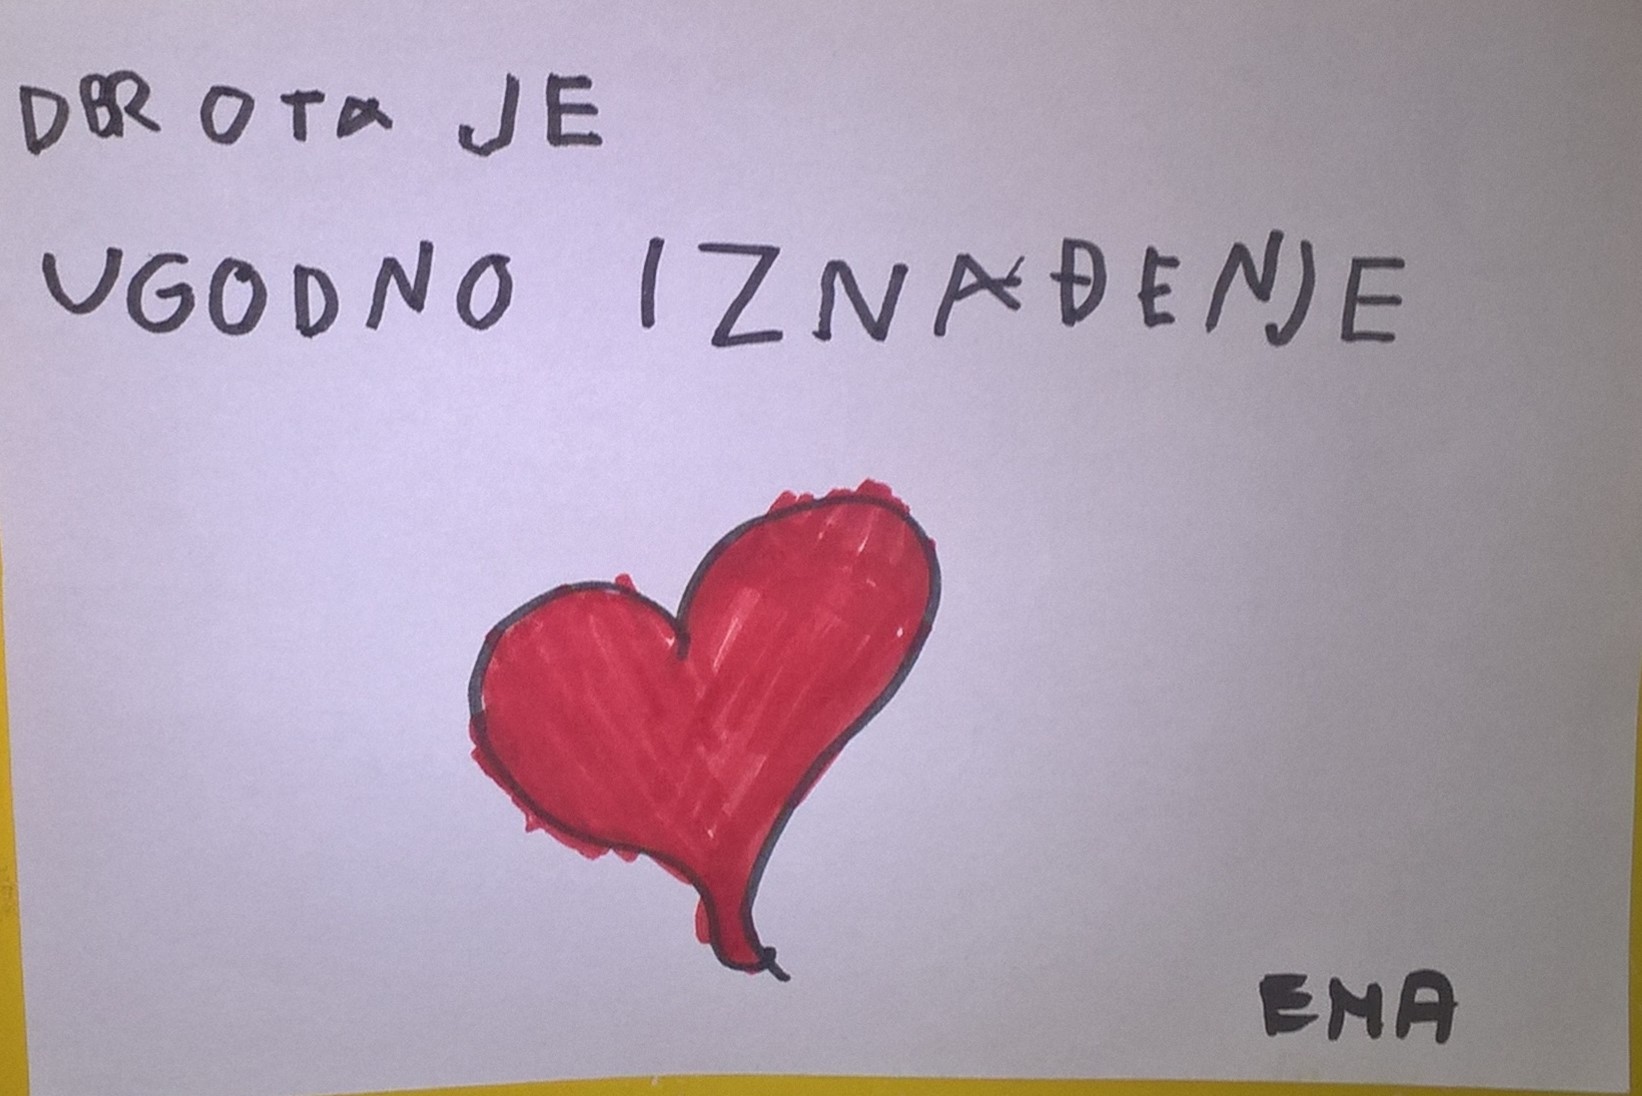 DBROTA JE
UGODNO IZNAĐENJE
EMA